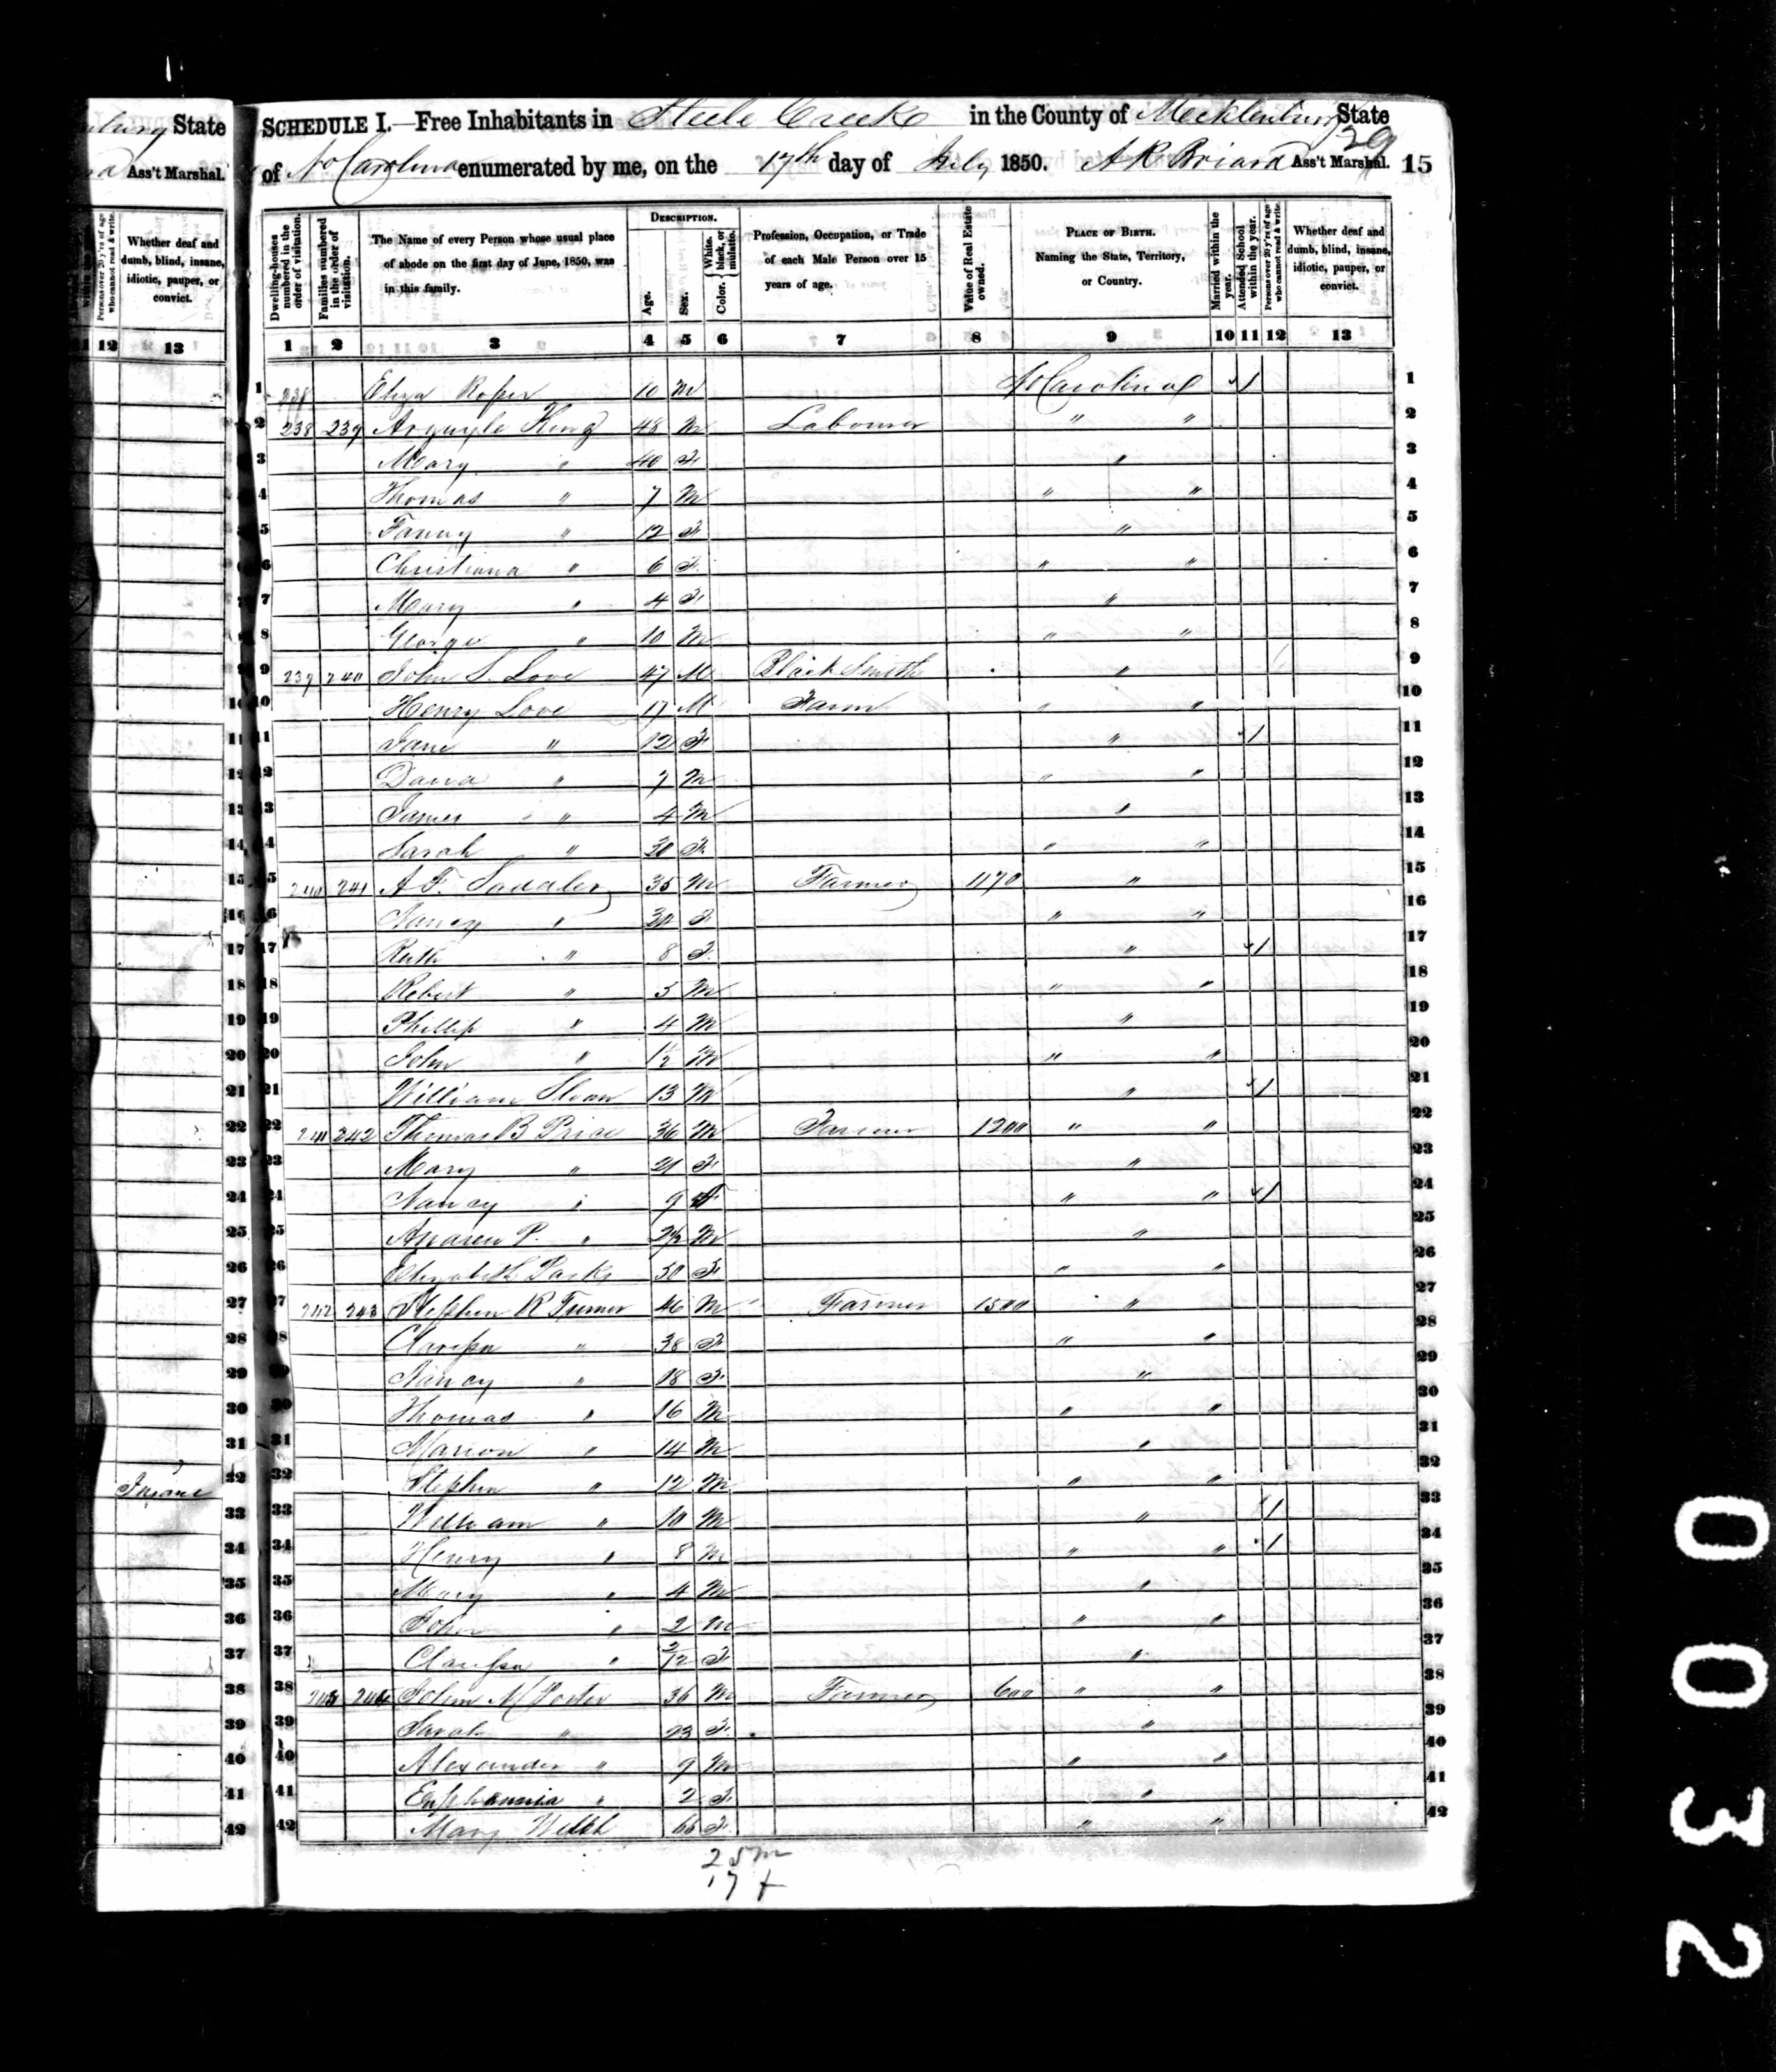 State
Ass't Marshal.
Whether deaf and dumb, blind, insane, idiotic, pauper, or convict.
12 13
Insane
SCHEDULE I.—Free Inhabitants in Steele Creek in the County of Mecklenburg State
of No Carolina enumerated by me, on the 17th day of July 1850. Ass't Marshal. 15
29
Dwelling-houses numbered in the order of visitation.
Families numbered in the order of visitation.
The Name of every Person whose usual place of abode on the first day of June, 1850, was in this family.
DESCRIPTION.
Age.
Sex.
Color. { White, black, or mulatto.
Profession, Occupation, or Trade of each Male Person over 15 years of age.
Value of Real Estate owned.
PLACE OF BIRTH.
Naming the State, Territory, or Country.
Married within the year.
Attended School within the year.
Persons over 20 y'rs of age who cannot read & write.
Whether deaf and dumb, blind, insane, idiotic, pauper, or convict.
1 2 3 4 5 6 7 8 9 10 11 12 13
1 Roper 10 M No Carolina / 1
2 238 239 Argayle King 48 M Labourer " " 2
3 Mary " 40 F " 3
4 Thomas " 7 M " " 4
5 Fanny " 12 F " 5
6 Christiana " 6 F " " 6
7 Mary " 4 F " 7
8 George " 10 M " " 8
9 239 240 John S. Love 47 M Black Smith " 9
10 Henry Love 17 M Farm " " 10
11 Jane " 12 F " / 11
12 " 7 M " " 12
13 James " 4 M " 13
14 Sarah " 30 F " " 14
15 240 241 A F. Saddler 35 M Farmer 1170 " 15
16 Nancy " F " " 16
17 Ruth " 8 F " / 17
18 Robert " 5 M " " 18
19 Phillip " 4 M " 19
20 John " 1/2 M " " 20
21 William Sloan 13 M " / 21
22 241 242 Thomas B Price 36 M Farmer 1200 " " 22
23 Mary " 21 F " 23
24 Nancy " 9 F " " / 24
25 Andrew P. " M " 25
26 Elizabeth Parks 30 F " " 26
27 242 243 Stephen R Turner 46 M Farmer 1500 " 27
28 Clarissa " 38 F " " 28
29 Nancy " 18 F " 29
30 Thomas " 16 M " " 30
31 Marion " 14 M " 31
32 Stephen " 12 M " " 32
33 William " 10 M " / 33
34 Henry " 8 M " " / 34
35 Mary " 4 M " 35
36 John " 2 M " " 36
37 Clarissa " 2/12 F " 37
38 243 244 John M Porter 36 M Farmer 600 " " 38
39 Sarah " 23 F " 39
40 Alexander " 9 M " " 40
41 Euphamia " 2 F " 41
42 Mary Welsh 66 F " " 42
25 m
17 f
0032